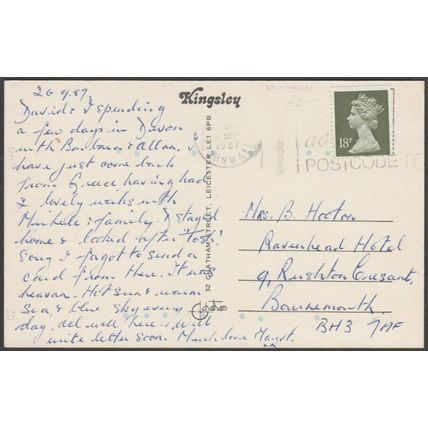 26.9.87.
David & I spending
a few days in Devon
with Barbara & Allan. I
have just come back
from Greece having had
2 lovely weeks with
Michele & family. D stayed
home & looked after
Song. I forgot to send a
card from there. It was
heaven. Hot sun & warm
sea, & blue sky every
day. All well here. Will
write letter soon. Much love Margot.
Kingsley
32 CHATHAM STREET, LEICESTER LE1 6PB
SEP
1987
POSTCODE IT
18P
Mrs. B. Hooton
Ravenhead Hotel
9, Rushton Crescent,
Bournemouth
BH3 7AF